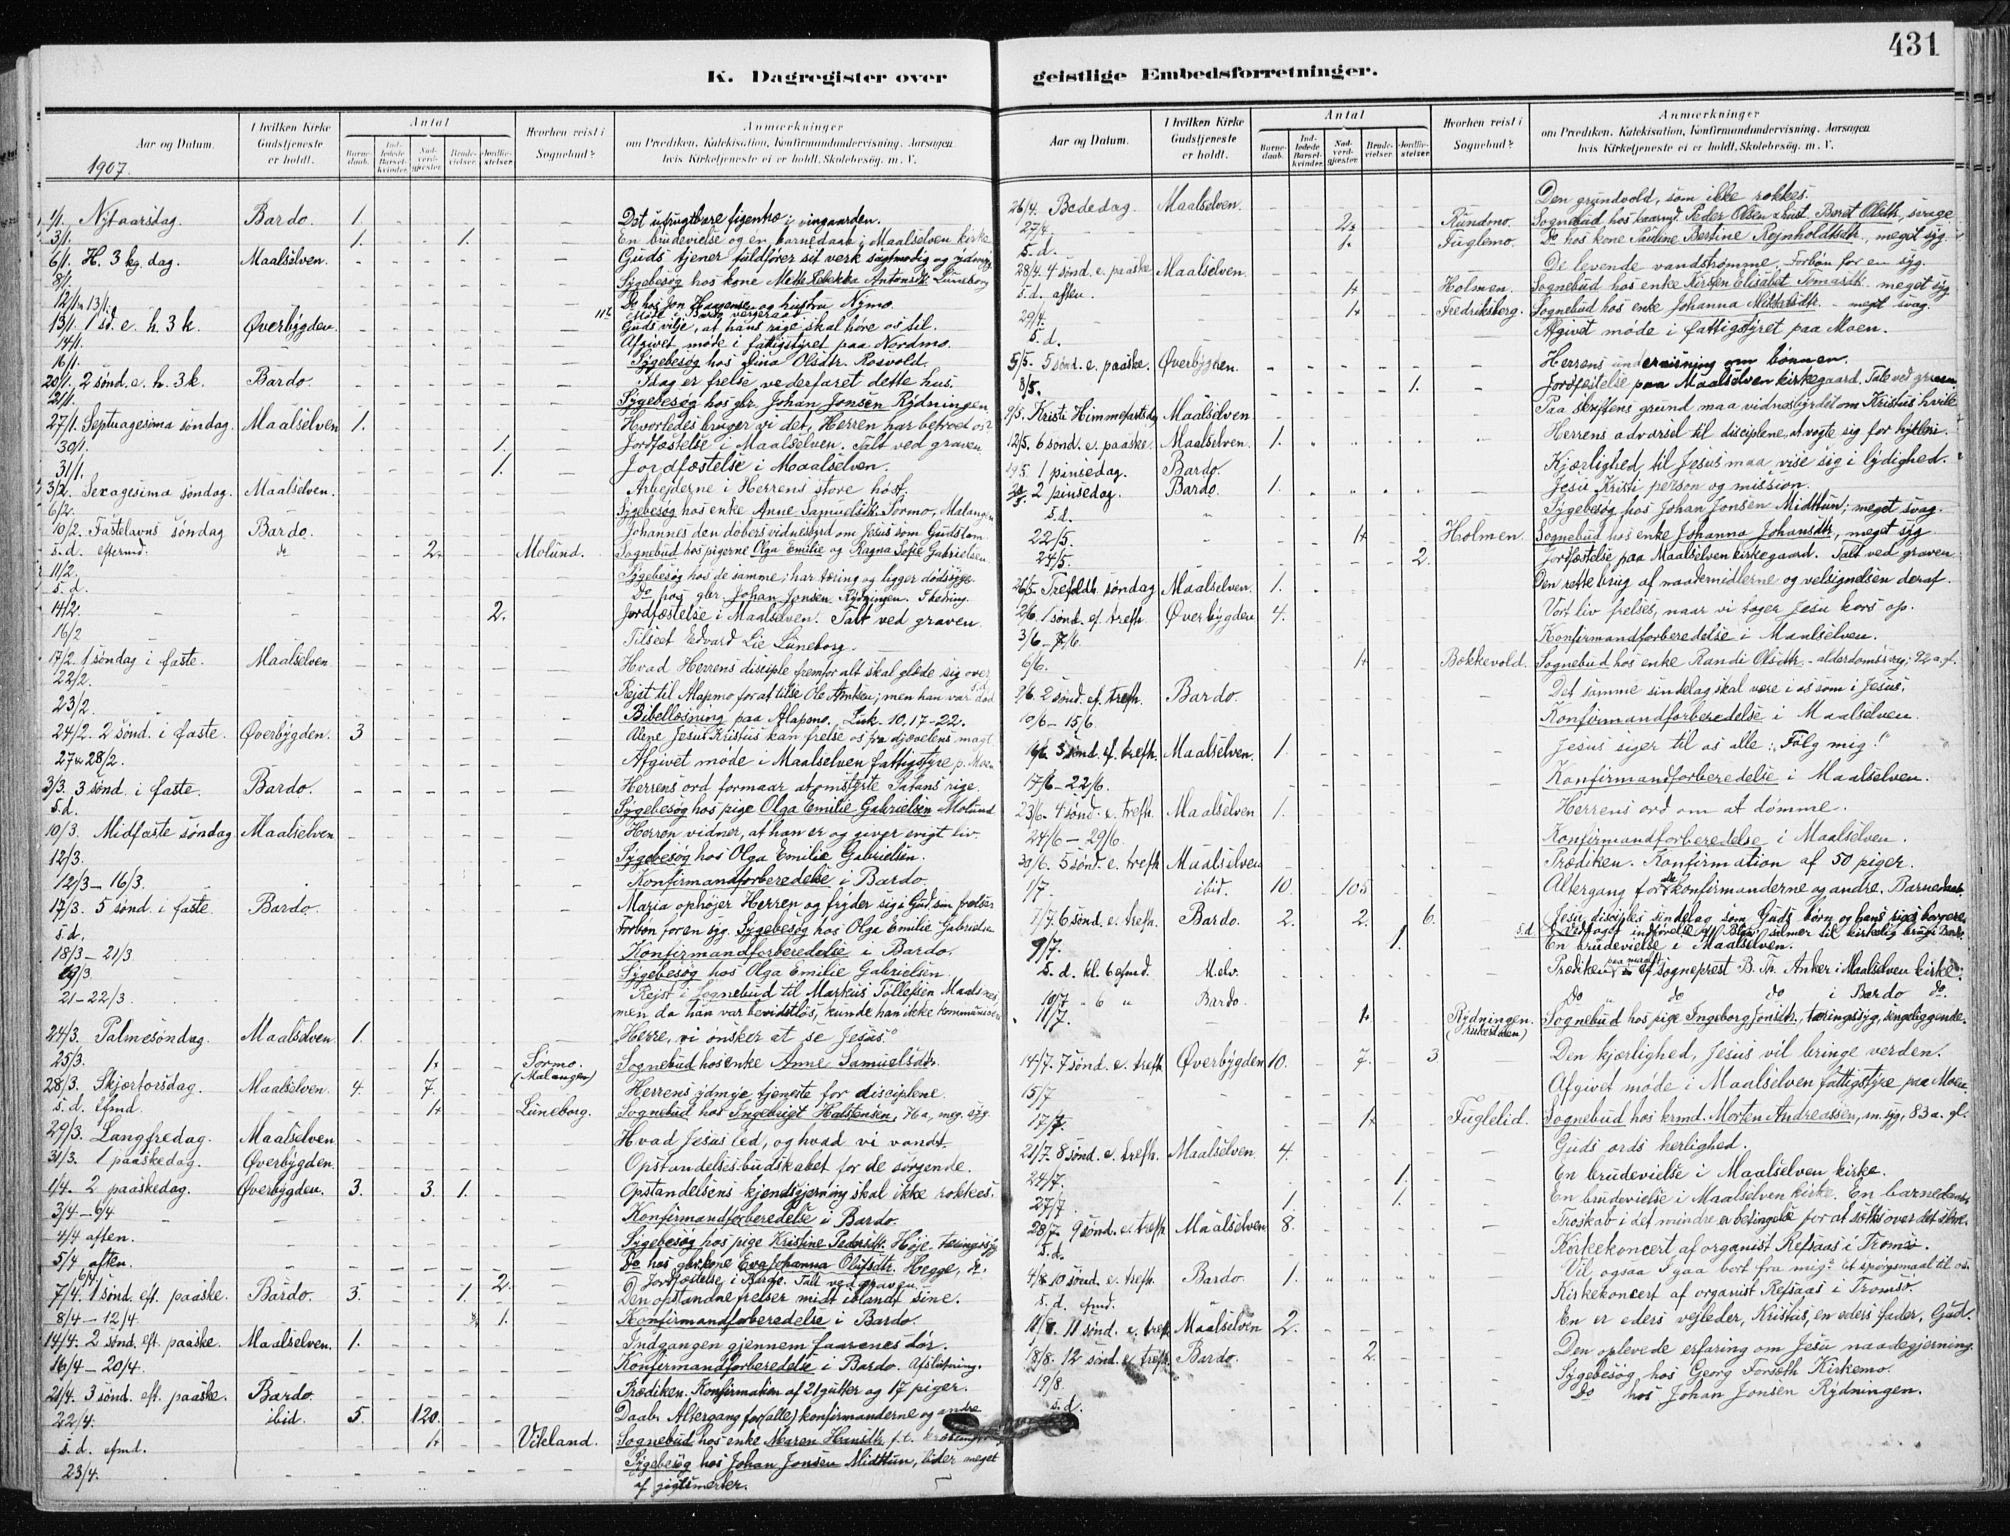 431
K. Dagregister over geistlige Embedsforretninger.
Aar og Datum. I hvilken Kirke Gudstjeneste er holdt. Antal Barnedaab. Indledede Barselkvinder. Nadverdgjæster. Brudevielser. Jordfæstelser. Hvorhen reist i Sognebud? Anmærkninger om Prædiken, Katekisation, Konfirmandundervisning, Aarsagen hvis Kirketjeneste ei er holdt, Skolebesøg. m. V.
1907.
1/1. Nytaarsdag. Bardo. 1. Det ufrugtbare figentræ i vingaarden.
3/1. 1. 1. En brudevielse og en barnedaab i Maalselven kirke
6/1. H. 3 kg. dag. Maalselven. Guds tjener fuldfører sit verk sagtmodig og
8/1. Sygebesøg hos kone Mette Rebekka Antonsdtr. Luneborg
12/1 13/1. Do hos Jon Haagensen og hustru Nymo.
13/1. 1 sd. e. h. 3 k. Øverbygden. Guds vilje, at hans rige skal høre os til.
14/1. Afgivet møde i fattigstyret paa Nordmo.
16/1. Sygebesøg hos Olsdtr. Rosvold.
20/1. 2 sønd. e. h. 3 k. Bardo. Idag er frelse vederfaret dette hus.
21/1. Sygebesøg hos gbr. Johan Jonsen Rydningen
27/1. Septuagesima søndag. Maalselven 1. Hvorledes bruger vi det, Herren har betroet os?
30/1. 1. Jordfæstelse i Maalselven. Talt ved graven
31/1. 1. Jordfæstelse i Maalselven.
3/2. Sexagesima søndag. Maalselven. Arbejderne i Herrens store høst.
6/2. Sygebesøg hos enke Anne Samuelsdtr. Sormo, Malangen
10/2. Fastelavns søndag Bardo. Johannes den døbers vidnesbyrd om Jesus som Gudslam
s. d. eftermd. do 2. Molund. Sognebud hos pigerne Olga Emilie og Ragna Sofie Gabrielsen
11/2. Sygebesøg hos de samme; har tæring og ligger dødssyge.
s. d. Do hos gbr. Johan Jonsen Rydningen. I bedring.
14/2. 2. Jordfæstelse i Maalselven. Talt ved graven
16/2 Tilseet Edvard Lie Luneborg.
17/2. 1 søndag i faste. Maalselven Hvad Herrens disciple fremfor alt skal glæde sig over
22/2. Rejst til Alapmo for at tilse Ole men han var død
23/2. Bibellæsning paa Alapmo. Luk. 10. 17-22.
24/2. 2 sønd. i faste. Øverbygden. 3 Alene Jesus Kristus kan frelse os fra djævelens magt
27 28/2. Afgivet møde i Maalselven fattigstyre p. Moen
3/3. 3 sønd. i faste. Bardo. Herrens ord formaar at omstyrte Satans rige
s. d. Sygebesøg hos pige Olga Emilie Gabrielsen Molund
10/3. Midfaste søndag Maalselven Herren vidner, at han er og giver evigt liv.
12/3. Sygebesøg hos Olga Emilie Gabrielsen.
12/3 – 16/3. Konfirmandforberedelse i Bardo.
17/3. 5 sønd. i faste Bardo. Maria ophøjer Herren og fryder sig i Gud sin frelser
s. d. Forbøn for en syg. Sygebesøg hos Olga Emilie Gabrielsen
18/3 – 21/3 Konfirmandforberedelse i Bardo.
19/3. Sygebesøg hos Olga Emilie Gabrielsen.
21-22/3. Rejst i Sognebud til Markus Tollefsen
men da han var bevidstløs, kunde han ikke
24/3. Palmesøndag. Maalselven. 1. Herre, vi ønsker at se Jesus.
25/3. 1. Sormo. (Malangen) Sognebud hos enke Anne Samuelsdtr.
28/3. Skjærtorsdag. Maalselven. 4. 7. Herrens ydmyge tjeneste for disciplene.
s. d. efmd. 1. Luneborg. Sognebud hos Ingebrigt Halstensen, 76 a, meg. syg.
29/3. Langfredag. Maalselven. Hvad Jesus led, og hvad vi vandt.
31/3. 1 paaskedag. Øverbygden. Opstandelsesbudskabet for de sørgende.
1/4. 2 paaskedag. Øverbygden. 3. 3. 1. Opstandelsens kjendsgjerning skal ikke rokkes.
3/4 – 6/4 Konfirmandforberedelse i Bardo.
4/4 aften. Sygebesøg hos pige Kristine Pedersdtr. Høje,
5/4 aften. Do hos Eva Johanna Hegge, do.
6/4 2. Jordfæstelse i Bardo. Talt ved graven.
7/4. 1 sønd. eft. paaske. Bardo. 3. 1. Den opstandne frelser midt iblandt sine.
8/4 – 12/4. 1. Konfirmandforberedelse i Bardo.
14/4. 2 sønd. eft. paaske. Maalselven. 1. Indgangen gjennem faarenes dør.
16/4 – 20/4. Konfirmandforberedelse i Bardo. Afslutning.
21/4. 3 sønd. eft. paaske. Bardo. Prædiken. Konfirmation af 21 gutter og 17 piger.
22/4. ibid. 5. 120. Daab. Altergang for (alle) konfirmanderne og andre
s. d. efmd. 1. Vikland. Sognebud hos enke Maren Hansdtr. f. t.
23/4. Sygebesøg hos Johan Jonsen Midthun, lider meget
af gigtsmerter.
Aar og Datum. I hvilken Kirke Gudstjeneste er holdt. Antal Barnedaab. Indledede Barselkvinder. Nadverdgjæster. Brudevielser. Jordfæstelser. Hvorhen reist i Sognebud? Anmærkninger om Prædiken, Katekisation, Konfirmandundervisning, Aarsagen hvis Kirketjeneste ei er holdt, Skolebesøg. m. V.
26/4. Bededag. Maalselven. Den grundvold, som ikke rokkes.
27/4. 2. Rundmo. Sognebud hos Peder Olsen Beret Olsdtr., svage
s. d. 1. Fuglemo. Do hos kone Pauline Bertine Rejnholdtsdtr., meget syg.
28/4. 4 sønd. e. paaske Maalselven. De levende vandstrømme. Forbøn for en syg.
s. d. aften. 1. Holmen. Sognebud hos enke Kirsten Elisabet Tomasdtr. meget syg
29/4. 1. Fredriksberg. Sognebud hos enke Johanna – meget svag.
s. d. Afgivet møde i fattigstyret paa Moen.
5/5. 5 sønd. e. paaske. Øverbygden. Herrens undervisning om bønnen.
8/5. 1. Jordfæstelse paa Maalselven kirkegaard. Tale ved graven
9/5. Kristi Himmelfartsdag Maalselven Paa skriftens grund maa vidnesbyrdet om Kristus hvile
12/5. 6 sønd. e. paaske. Maalselven. 1. Herrens advarsel til disciplene, at vogte sig for hykleri.
19/5 1 pinsedag. Bardo. Kjærlighed til Jesus maa vise sig i lydighed.
20/5 2 pinsedag. Bardo. 1. Jesu Kristi person og mission.
s. d. Sygebesøg hos Johan Jonsen Midthun; meget svag.
22/5. 1. Holmen. Sognebud hos enke Johanna Johansdtr., meget syg
24/5. 2. Jordfæstelse paa Maalselven kirkegaard. Talt ved graven
26/5. Trefoldh. søndag Maalselven. 1. Den rette brug af naademidlerne og velsignelsen deraf.
2/6. 1 sønd. ef. trefh. Øverbygden 4. Vort liv frelses, naar vi tager Jesu kors op.
3/6 – 7/6. Konfirmandforberedelse i Maalselven.
6/6. 1. Bokkevold. Sognebud hos enke Randi Olsdtr. – alderdomssvag; 92 a. gl.
9/6. 2 sønd. ef. trefh. Bardo. Det samme sindelag skal være i os som i Jesus.
10/6 – 15/6. Konfirmandforberedelse i Maalselven.
16/6. 3 sønd. ef. trefh. Maalselven. 1. Jesus siger til os alle: „Følg mig!“
17/6 – 22/6. Konfirmandforberedelse i Maalselven.
23/6. 4 sønd. e. trefh. Maalselven 1. Herrens ord om at dømme.
24/6 – 29/6. Konfirmandforberedelse i Maalselven.
30/6. 5 sønd. e. trefh Maalselven Prædiken. Konfirmation af 50 piger.
1/7. ibid. 10. 105 Altergang for konfirmanderne og andre. Barnedaab.
7/7. 6 sønd. e. trefh. Bardo. 2. 2. 6. Jesu disciples sindelag som Guds børn og hans riges borgere
s. d. salmer til kirkelig brug i Bardo.
9/7. 1. En brudevielse i Maalselven.
s. d. kl. 6 efmd. M.elv. Prædiken af sogneprest B. Th. Anker i Maalselven kirke.
10/7 „ 6 „ Bardo. do do do i Bardo do.
11/7. 1. Rydningen. Sognebud hos pige Ingeborg Jonsdtr., tæringssyg, sengeliggende.
14/7. 7 sønd. e. trefh Øverbygden 10. 7. 3. Den kjærlighed, Jesus vil bringe verden.
15/7 Afgivet møde i Maalselven fattigstyre paa Moen
17/7. 1. Fuglelid. Sognebud hos krmd. Morten Andreassen, m. syg, 83 a. gl.
21/7. 8 sønd. e. trefh. Maalselven 4. Guds ords herlighed.
24/7. 1. En brudevielse i Maalselven kirke.
27/7. 1. 1. En brudevielse i Maalselven kirke. En barnedaab
28/7. 9 sønd. e. trefh Maalselven 8. Troskab i det mindre er betingelse for at sættes over det større.
s. d. Kirkekoncert af organist Refsaas i Tromsø.
4/8 10 sønd. e. trefh. Bardo. 1. Vil ogsaa I gaa bort fra mig? Et spørgsmaal til os.
s. d. efmd. Kirkekoncert af organist Refsaas i Tromsø.
11/8. 11 sønd. e. trefh Maalselven 2. En er eders vejleder, Kristus, en eders fader, Gud.
18/8. 12 sønd. e. trefh. Bardo. 2. Den oplevede erfaring om Jesu naadegjerning
19/8. Sygebesøg hos Georg Forseth Kirkemo.
s. d. Do hos Johan Jonsen Rydningen.